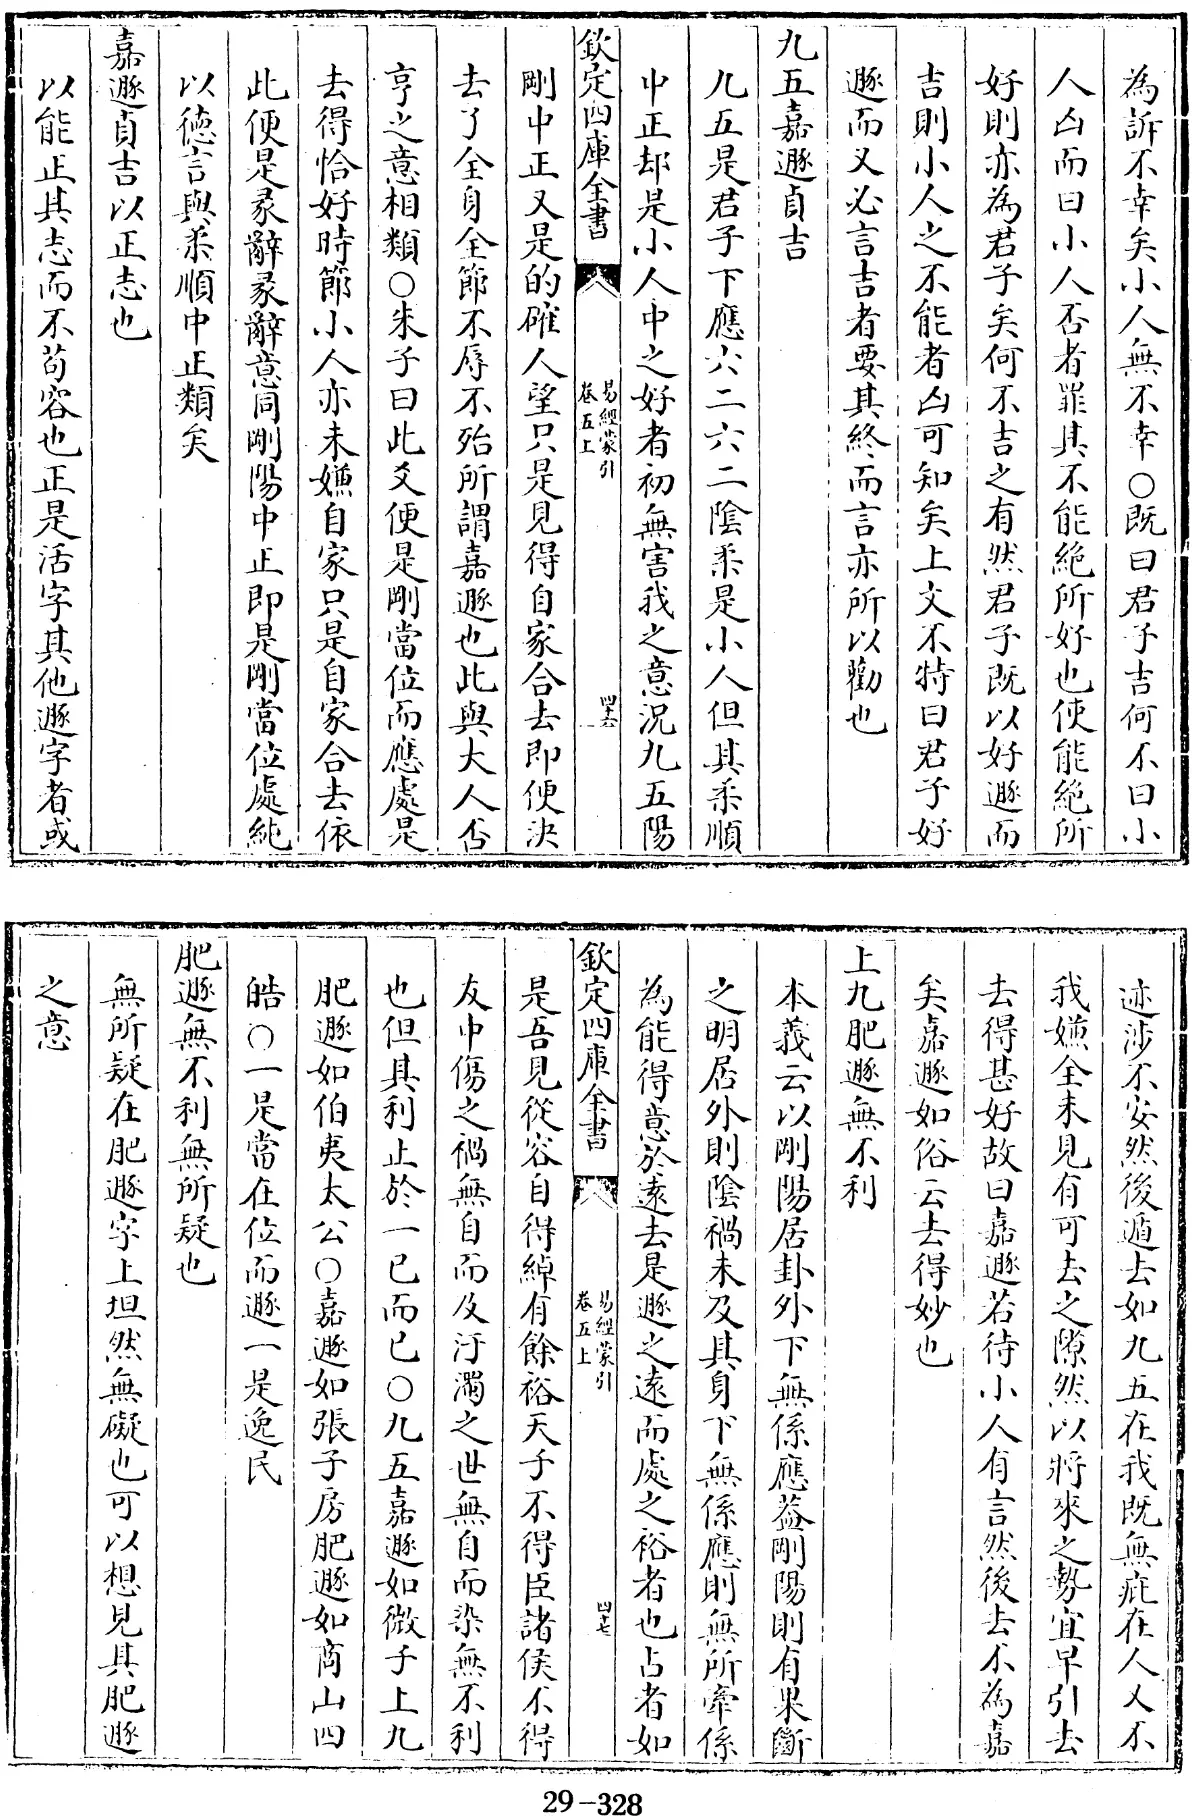 為訴不幸矣小人無不幸○既曰君子吉何不曰小
人凶而曰小人否者罪其不能絶所好也使能絶所
好則亦為君子矣何不吉之有然君子既以好遯而
吉則小人之不能者凶可知矣上文不特曰君子好
遯而又必言吉者要其終而言亦所以勸也
九五嘉遯貞吉
九五是君子下應六二六二陰柔是小人但其柔順
中正却是小人中之好者初無害我之意況九五陽
欽定四庫全書
易經蒙引
卷五上
四十六
剛中正又是的確人望只是見得自家合去即便決
去了全身全節不辱不殆所謂嘉遯也此與大人否
亨之意相類○朱子曰此爻便是剛當位而應處是
去得恰好時節小人亦未嫌自家只是自家合去依
此便是彖辭彖辭意同剛陽中正即是剛當位處純
以徳言與柔順中正類矣
嘉遯貞吉以正志也
以能正其志而不苟容也正是活字其他遯字者或
迹涉不安然後遁去如九五在我既無疵在人又不
我嫌全未見有可去之隙然以將來之勢宜早引去
去得甚好故曰嘉遯若待小人有言然後去不為嘉
矣嘉遯如俗云去得妙也
上九肥遯無不利
本義云以剛陽居卦外下無係應葢剛陽則有果斷
之明居外則陰禍未及其身下無係應則無所牽係
為能得意於逺去是遯之逺而處之裕者也占者如
欽定四庫全書
易經蒙引
卷五上
四十七
是吾見從容自得綽有餘裕天子不得臣諸侯不得
友中傷之禍無自而及汙濁之世無自而染無不利
也但其利止於一已而已○九五嘉遯如微子上九
肥遯如伯夷太公○嘉遯如張子房肥遯如商山四
皓○一是當在位而遯一是逸民
肥遯無不利無所疑也
無所疑在肥遯字上坦然無礙也可以想見其肥遯
之意
29-328